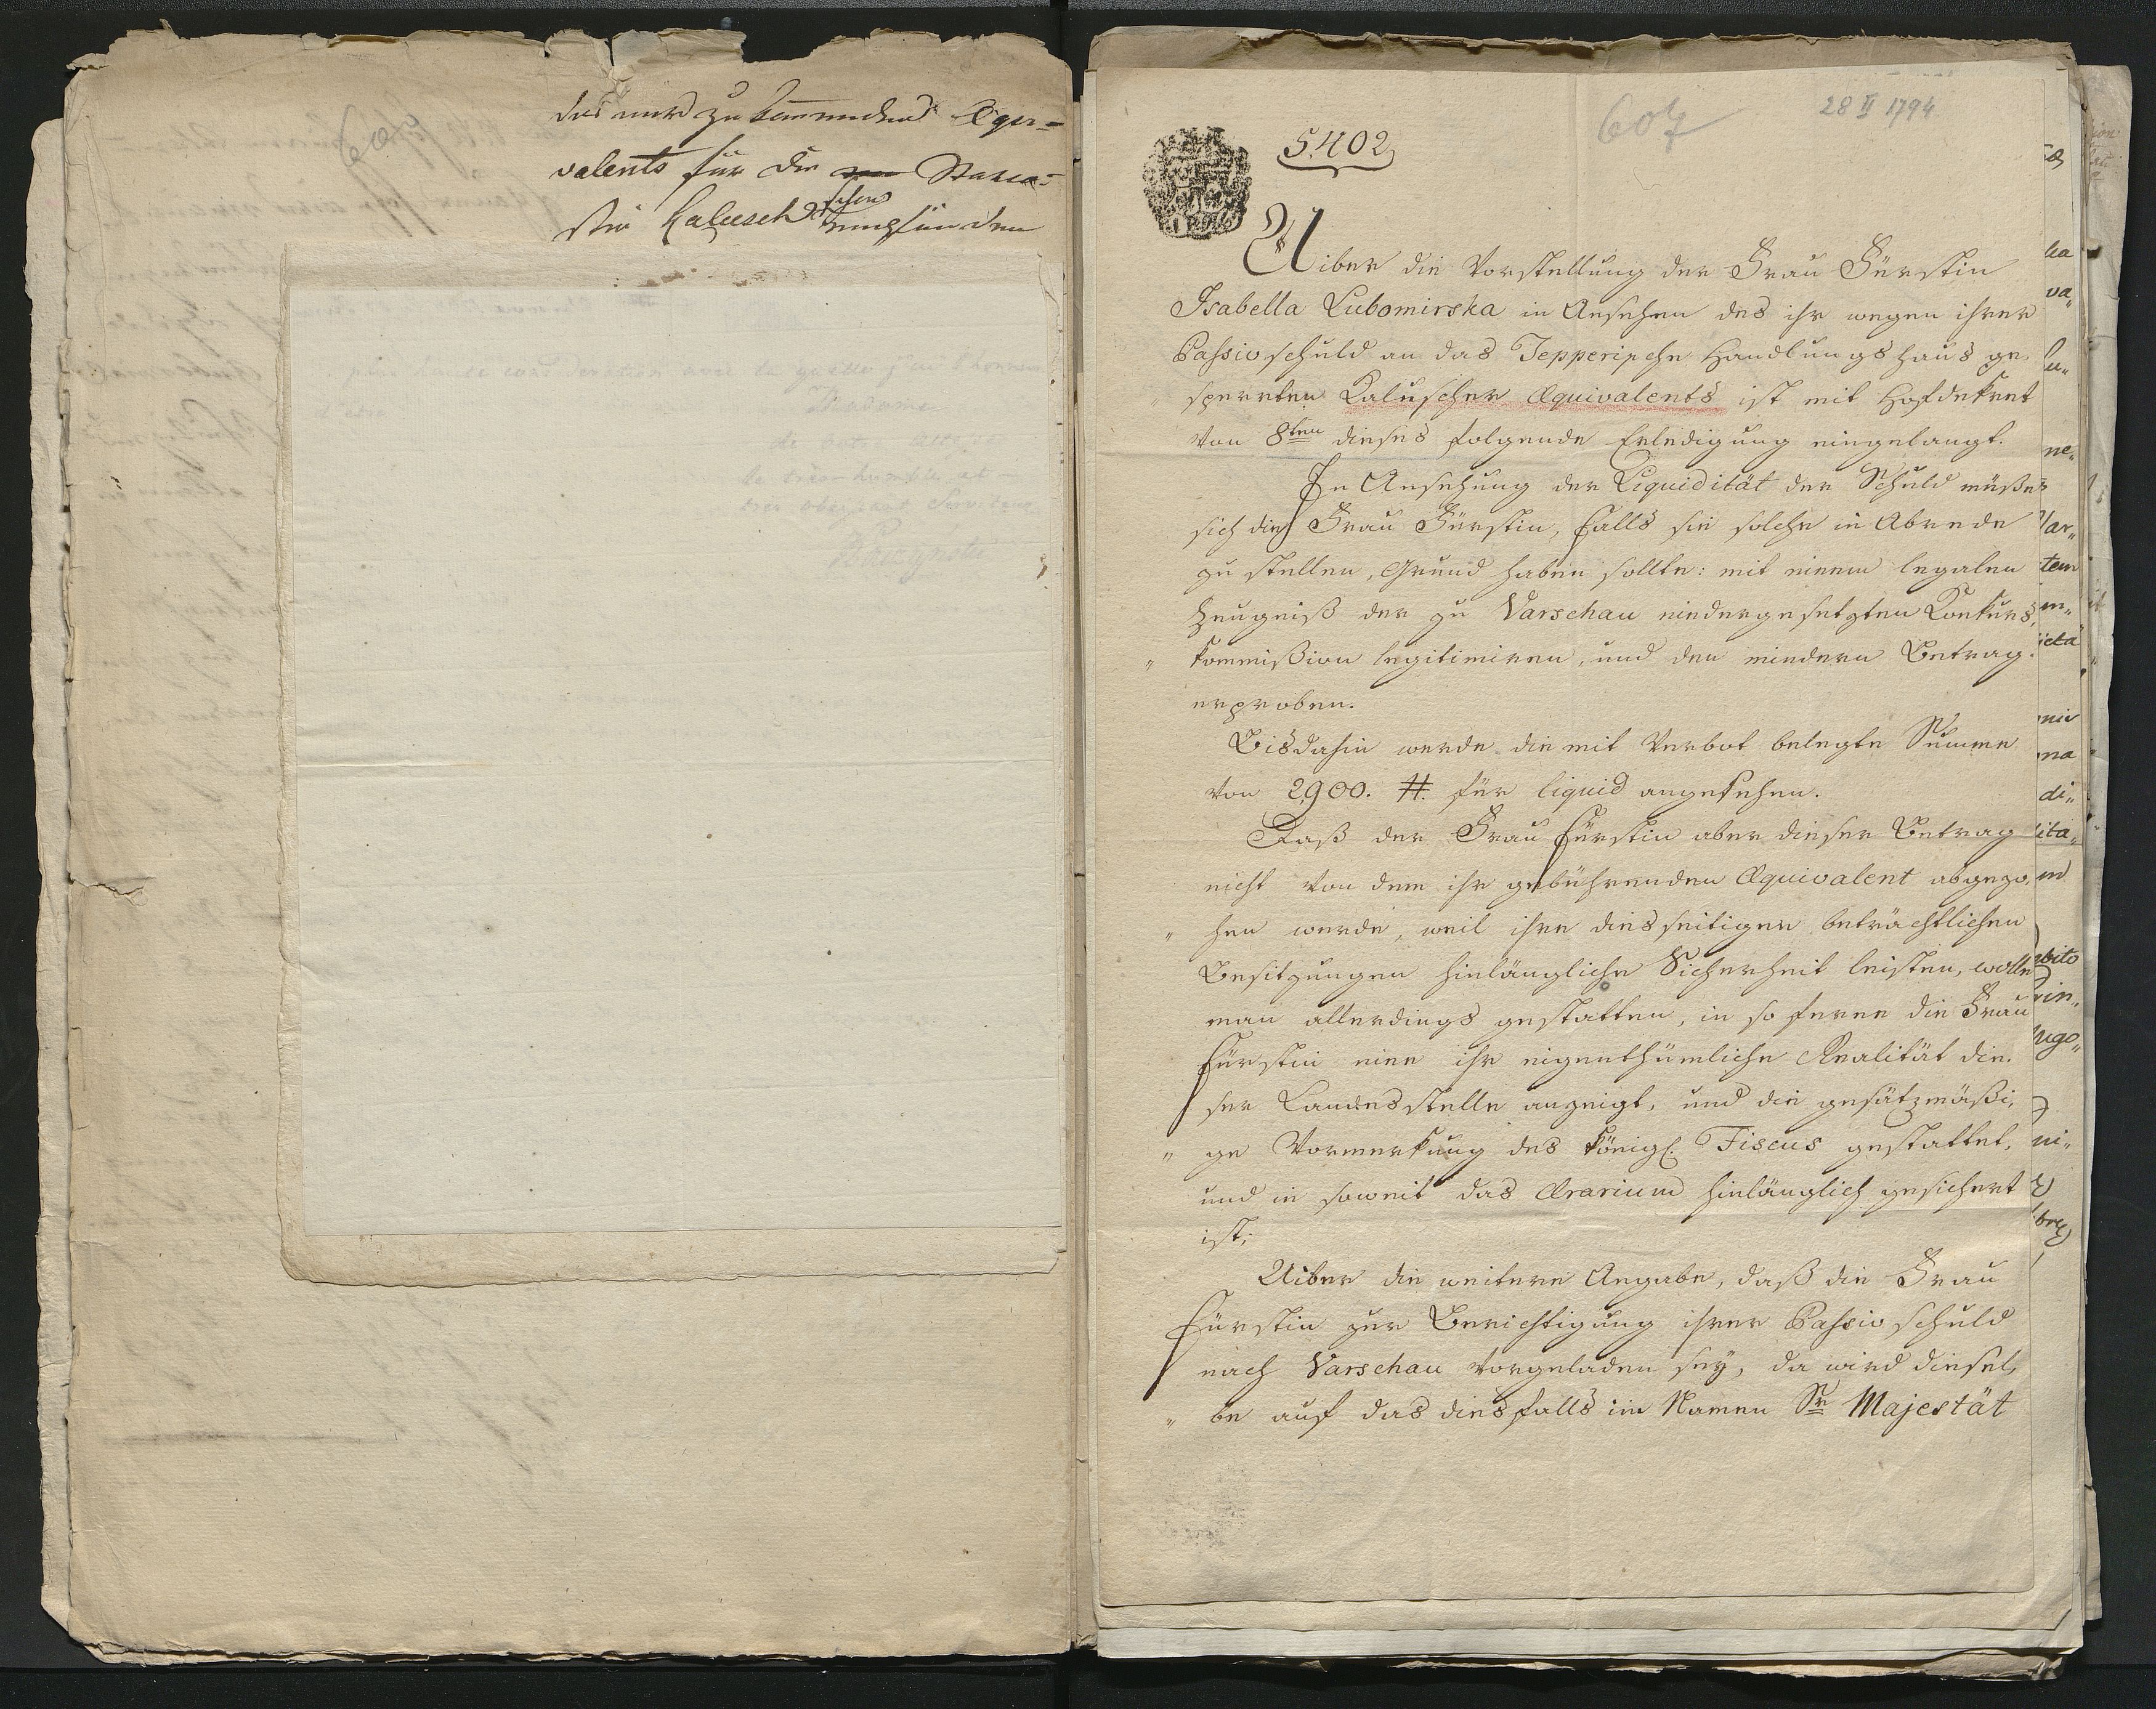 das mir zukommenden Æqui=
valents für die Staro=
stei Kalusch
plus haute consideration avec la quelle j'ai l'honneur
d'etre
Madame
de Votre Altesse
le très-humble et
tres obeissant Serviteur
607
28 II 1794
5.402
Uiber die Vorstellung der Frau Fürstin
Isabella Lubomirska in Ansehen des ihr wegen ihrer
Passivschuld an das Tepperische Handlungshaus ge„
sperrten Kaluscher Æquivalents ist mit Hofdekret
von 8ten dieses folgende Erledigung eingelangt.
In Ansehung der Liquidität der Schuld müße
sich die Frau Fürstin, falls sie solche in Abrede
zu stellen, Grund haben sollte: mit einem legalen
Zeugniß der zu Varschau niedergesetzten Konkurs„
„ kommißion legitimiren, und den mindern Betrag
erproben.
Bisdahin werde die mit Verbot belegte Summe
von 2,900. #. für liquid angesehen.
Daß der Frau Fürstin aber dieser Betrag
nicht von dem ihr gebührenden Æquivalent abgezo„
„ hen werde, weil ihre diesseitigen beträchtlichen
Besitzungen hinlängliche Sicherheit leisten, wolle
man allerdings gestatten, in so ferne die Frau
Fürstin eine ihr eigenthümliche Realität die„
ser Landesstelle anzeigt, und die gesätzmäßi„
„ ge Vormerkung des königl. Fiscus gestattet,
und in soweit das Ærarium hinlänglich gesichert
ist;
Uiber die weitere Angabe, daß die Frau
Fürstin zur Berichtigung ihrer Passivschuld
nach Varschau vorgeladen sey, da wird diesel„
„ be auf das diesfalls im Namen Sr Majestät